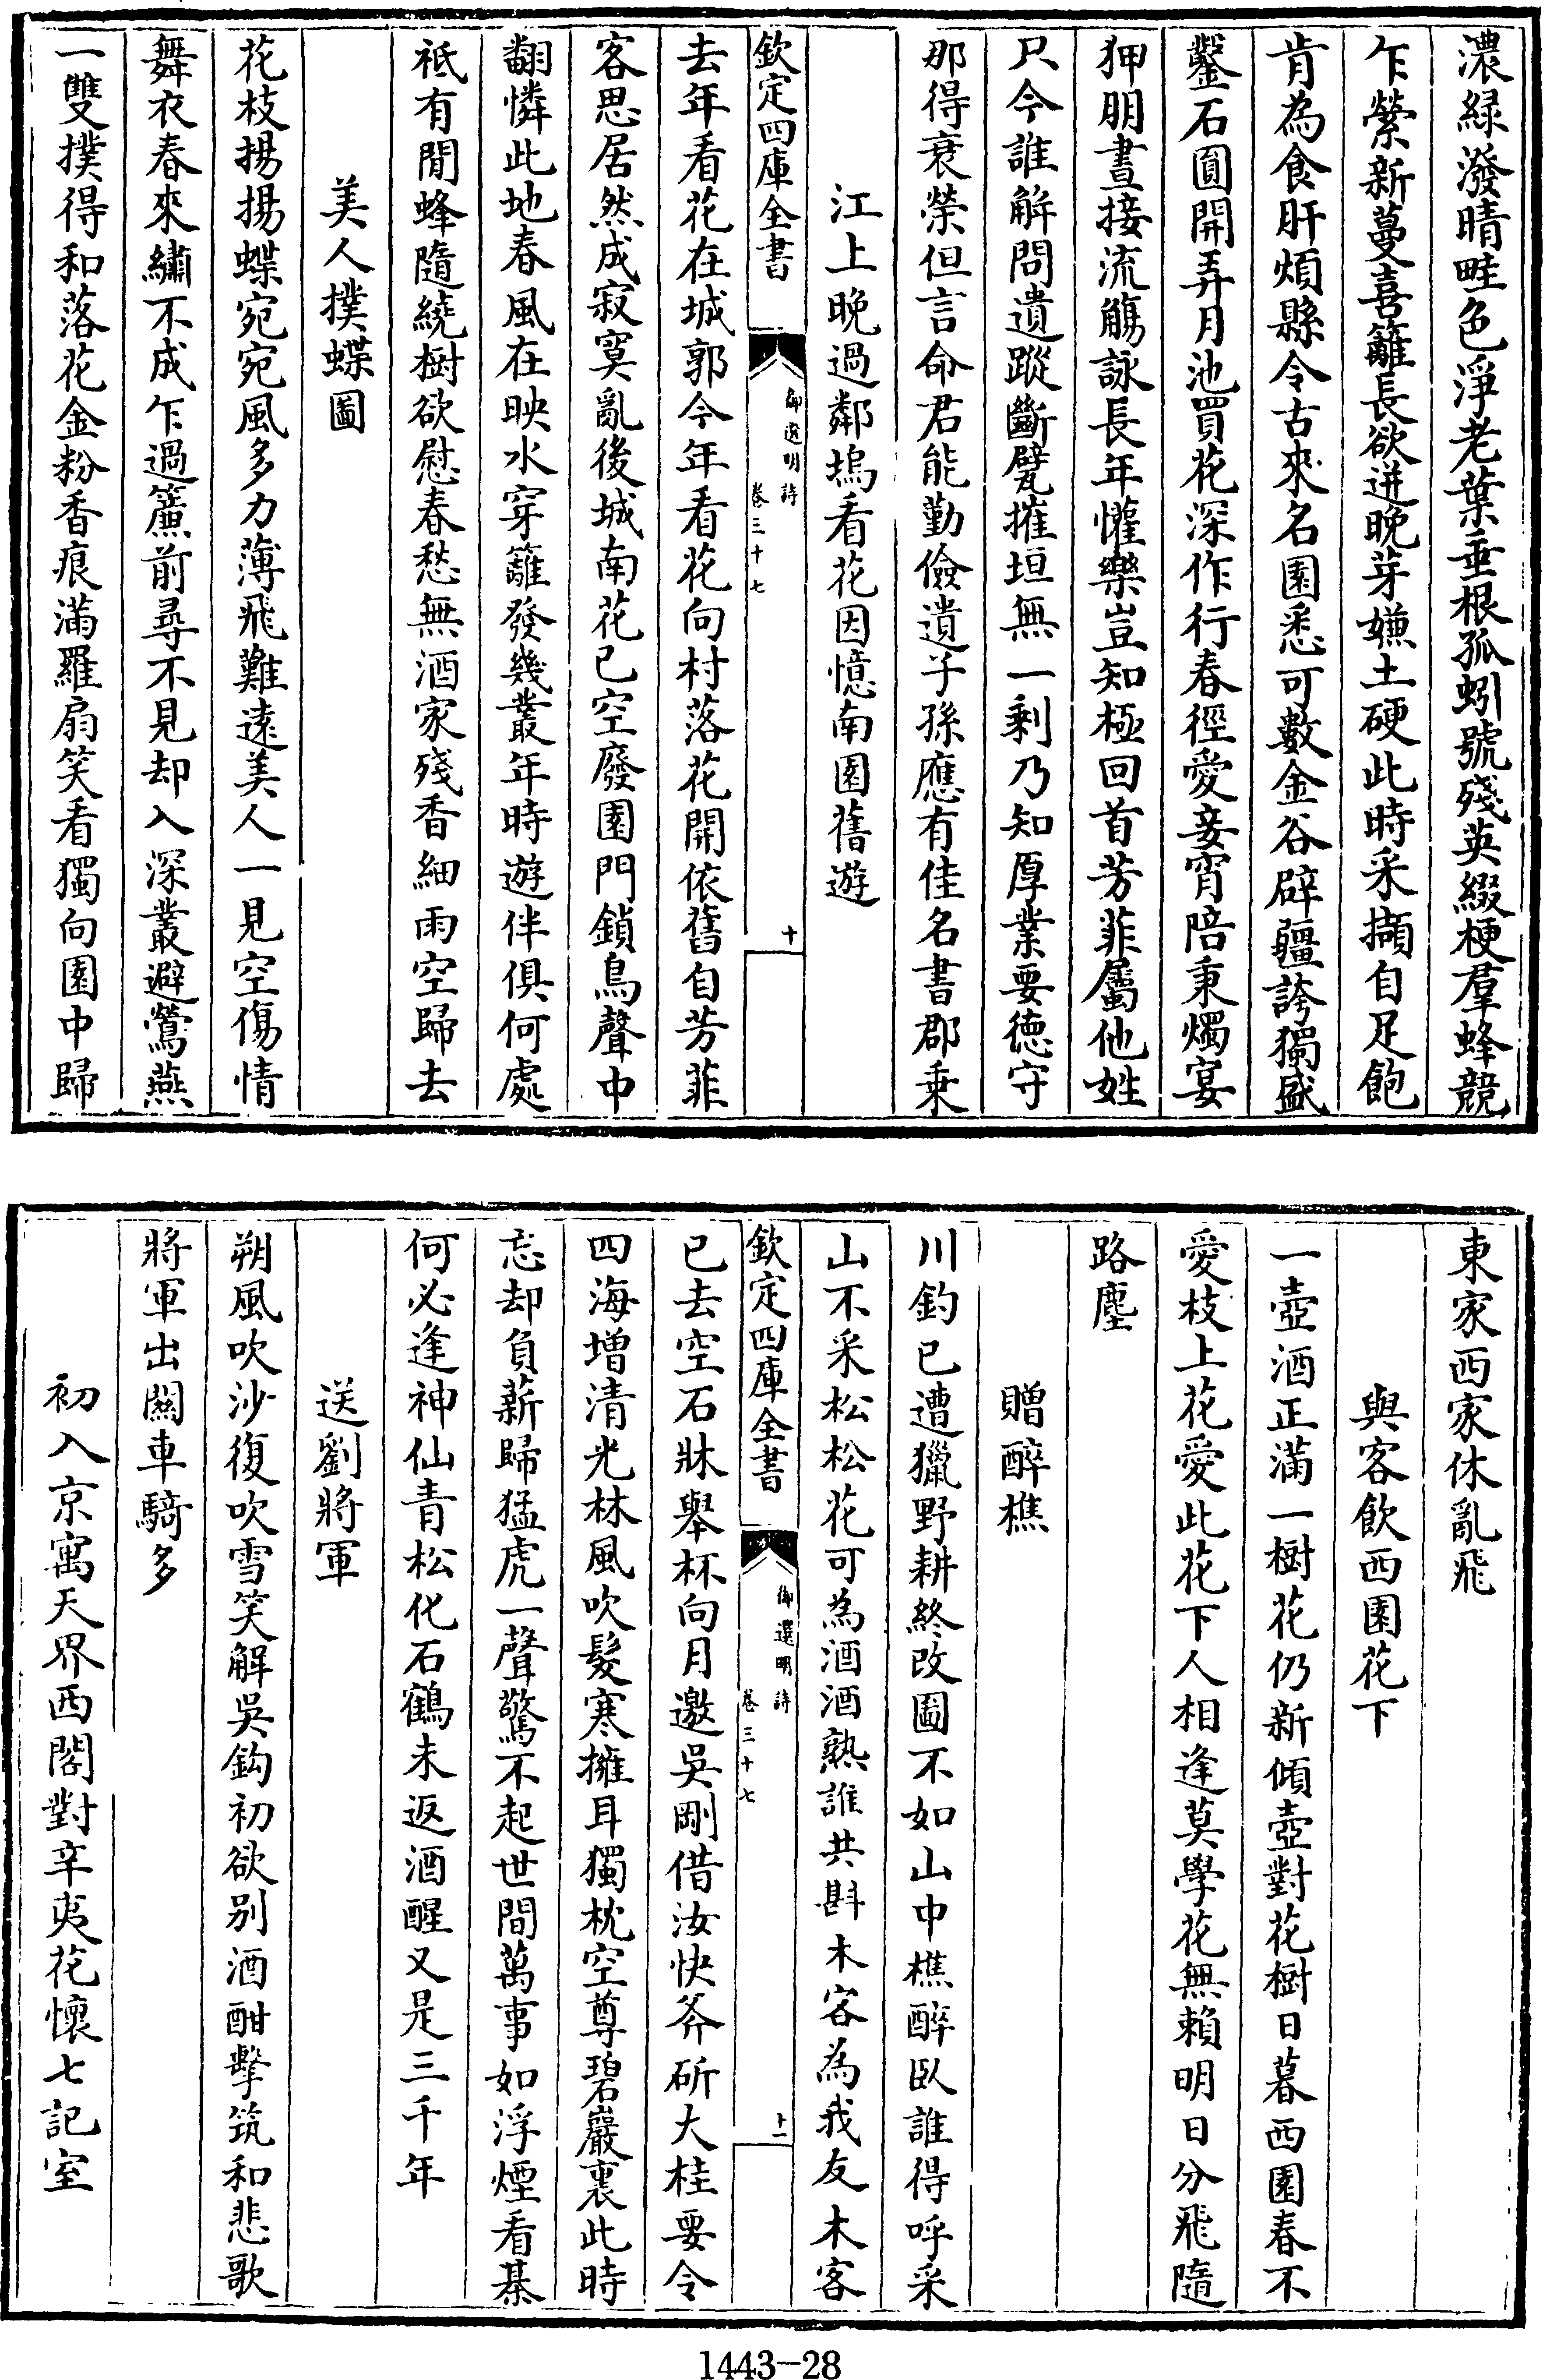 濃緑潑晴畦色淨老葉垂根孤蚓號殘英綴梗羣蜂競
乍縈新蔓喜籬長欲迸晚芽嫌土硬此時采擷自足飽
肯為食肝煩縣令古來名園悉可數金谷辟疆誇獨盛
鑿石圓開弄月池買花深作行春徑愛妾宵陪秉燭宴
狎朋晝接流觴詠長年懽樂豈知極回首芳菲屬他姓
只今誰解問遺蹤斷甓摧垣無一剩乃知厚業要德守
那得衰榮但言命君能勤儉遺子孫應有佳名書郡乗
江上晚過鄰塢看花因憶南園舊遊
欽定四庫全書
御選明詩
卷三十七
十
去年看花在城郭今年看花向村落花開依舊自芳菲
客思居然成寂寞亂後城南花已空廢園門鎖鳥聲中
翻憐此地春風在映水穿籬發幾叢年時遊伴俱何處
祗有閒蜂隨繞樹欲慰春愁無酒家殘香細雨空歸去
美人撲蝶圖
花枝揚揚蝶宛宛風多力薄飛難逺美人一見空傷情
舞衣春來繡不成乍過簾前尋不見却入深叢避鶯燕
一雙撲得和落花金粉香痕滿羅扇笑看獨向園中歸
東家西家休亂飛
與客飲西園花下
一壺酒正滿一樹花仍新傾壺對花樹日暮西園春不
愛枝上花愛此花下人相逢莫學花無賴明日分飛隨
路塵
贈醉樵
川釣已遭獵野耕終改圖不如山中樵醉臥誰得呼采
山不采松松花可為酒酒熟誰共斟木客為我友木客
欽定四庫全書
御選明詩
卷三十七
十一
已去空石牀舉杯向月邀吳剛借汝快斧斫大桂要令
四海增清光林風吹髮寒擁耳獨枕空尊碧巖裏此時
忘却負薪歸猛虎一聲驚不起世間萬事如浮煙看棊
何必逢神仙青松化石鶴未返酒醒又是三千年
送劉將軍
朔風吹沙復吹雪笑解吳鈎初欲别酒酣擊筑和悲歌
將軍出關車騎多
初入京寓天界西閣對辛夷花懷七記室
1443-28